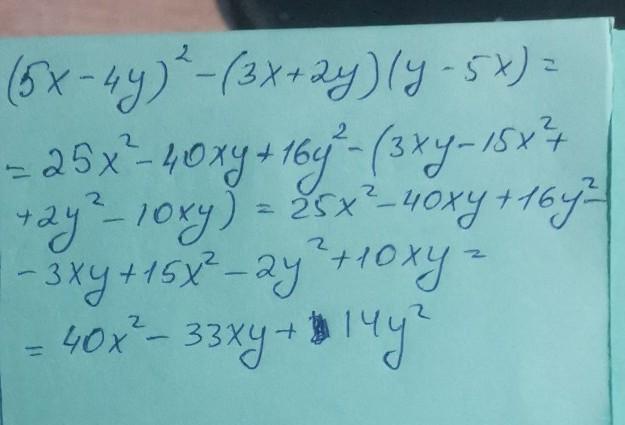 (5x-4y)²-(3x+2y)(y-5x)=
=25x²-40xy+16y²-(3xy-15x²+
+2y²-10xy)=25x²-40xy+16y²-
-3xy+15x²-2y²+10xy=
=40x²-33xy+14y²